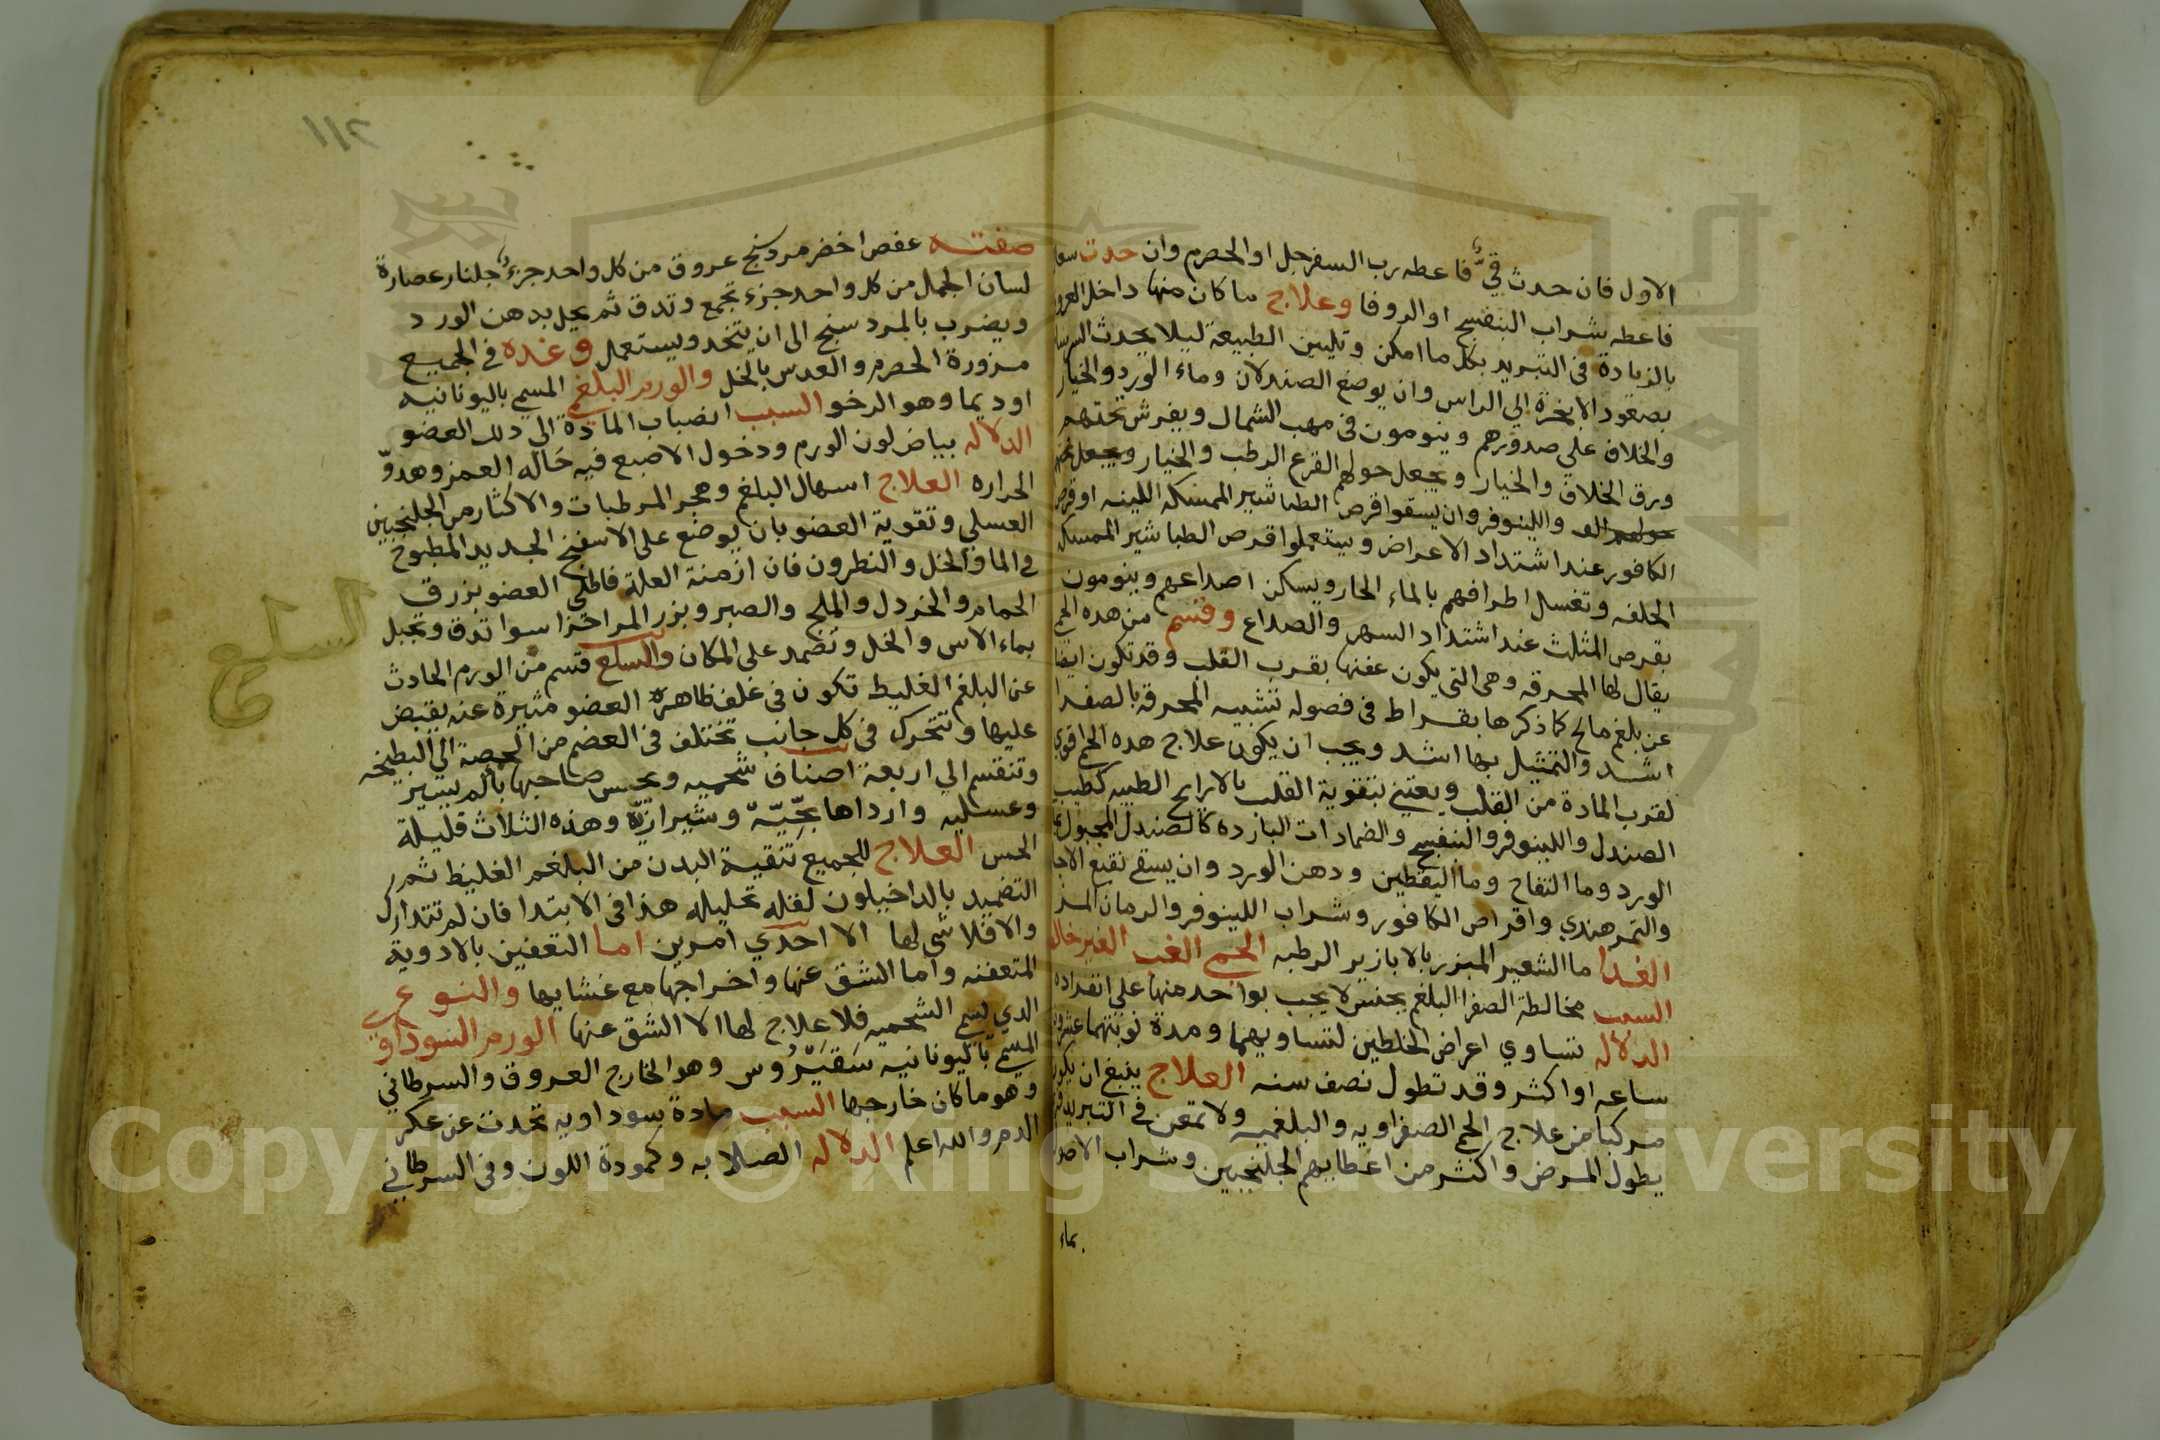 الاول فان حدث قيٌّ فاعطه رب السفرجل او الحصرم وان حدث سعا
فاعطه شراب البنفسج او الروفا وعلاج ما كان منها داخل العرو
بالزيادة في التبريد بكل ما امكن وتليين الطبيعة ليلا يحدث السرسا
بصعود الابخرة الي الراس وان يوضع الصندلان وماء الورد والخيار
والخلاف علي صدورهم وينومون في مهب الشمال ويفرش تحتهم
ورق الخلاف والخيار ويجعل حولهم القرع الرطب والخيار ويجعل
حولهم واللينوفر وان يسقوا قرص الطباشير الممسكه اللينه او قرص
الكافور عند اشتداد الاعراض ويستعملوا قرص الطباشير الممسكه
الخلفه وتغسل اطرافهم بالماء الحار ويسكن اصداعهم وينومون
بقرص المثلث عند اشتداد السهر والصداع وقسم من هده الحمي
يقال لها المحرقه وهي التي يكون عفنها بقرب القلب وقد تكون ايضا
عن بلغم مالح كما ذكرها بقراط في فصوله تشبيه المحرقه بالصفرا
اشد والتمثيل بها اشد ويجب ان يكون علاج هده الحمي اقوي
لقرب المادة من القلب ويعتني بتقوية القلب بالارايح الطيبه كطيب
الصندل واللينوفر والبنفسج والضمادات البارده كالصندل المجبول بما
الورد وما التفاح وما اليقطين ودهن الورد وان يسقي نقيع الاجا
والتمر هندي واقراص الكافور وشراب اللينوفر والرمان المز
الغدا ما الشعير المبزر بالابازير الرطبه الحمي الغب الغير خالصه
السبب مخالطة الصفرا البلغم بجنس لا يجب بواحد منها علي انفراده
الدلاله تساوي اعراض الخلطين لتساويهما ومدة نوبتهما عشرون
ساعه او اكثر وقد تطول نصف سنه العلاج ينبغي ان يكون
مركبا من علاج الحمي الصفراويه والبلغميه ولا تمعن في التبريد
يطول المرض واكثر من اعطايهم الجلنجبين وشراب الاصول
بماء
١١٢
صفته عفص اخضر مردسنج عروق من كل واحد جزء جلنار عصارة
لسان الحمل من كل واحد جزء تجمع وتدق ثم يحل بدهن الورد
ويضرب بالمردسنج الى ان يتخد ويستعمل وغده في الجميع
مزورة الحصرم والعدس بالخل والورم البلغمي المسمي باليونانيه
اوديما وهو الرخو السبب انصباب المادة الي دلك العضو
الدلاله بياض لون الورم ودخول الاصبع فيه حاله الغمز وهدوّ
الحراره العلاج اسهال البلغم وهجر المرطبات والاكثار من الجلنجبين
العسلي وتقوية العضو بان يوضع علي الاسفنج الجديد المطبوخ
في الما والخل والنطرون فان ازمنة العلة فاطلي العضو بزرق
الحمام والخردل والملح والصبر وبزر المر اخزا سوا تدق وتجبل
بماء الاس والخل وتضمد علي المكان والسلع قسم من الورم الحادث
عن البلغم الغليظ تكون في غلف ظاهرة العضو متبرة عنه يقبض
عليها وتتحرك في كل جانب تختلف في العضم من الحمصة الي البطيخه
وتنقسم الي اربعة اصناف شحميه ويحس صاحبها بالم يسير
وعسليه وارداها بجّيّة وشيرازيّة وهذه الثلاث قليلة
الحس العلاج للجميع تنقية البدن من البلغم الغليظ ثم
التضميد بالداخيلون لقله تحليله هذا في الابتدا فان لم تتدارك
والا فلا شي لها الا احدي امرين اما التعفين بالادوية
المتعفنه واما الشق عنها واخراجها مع غشايها والنوع
الدي يسمي الشحميه فلا علاج لها الا الشق عنها الورم السوداوي
المسمي باليونانيه سَقيَرُوس وهو الخارج العروق والسرطاني
وهو ما كان خارجها السبب مادة سوداويه تحدث عن عكر
الدم والله اعلم الدلاله الصلابه وكمودة اللون وفي السرطاني
السلع
Copyright © King Saud University